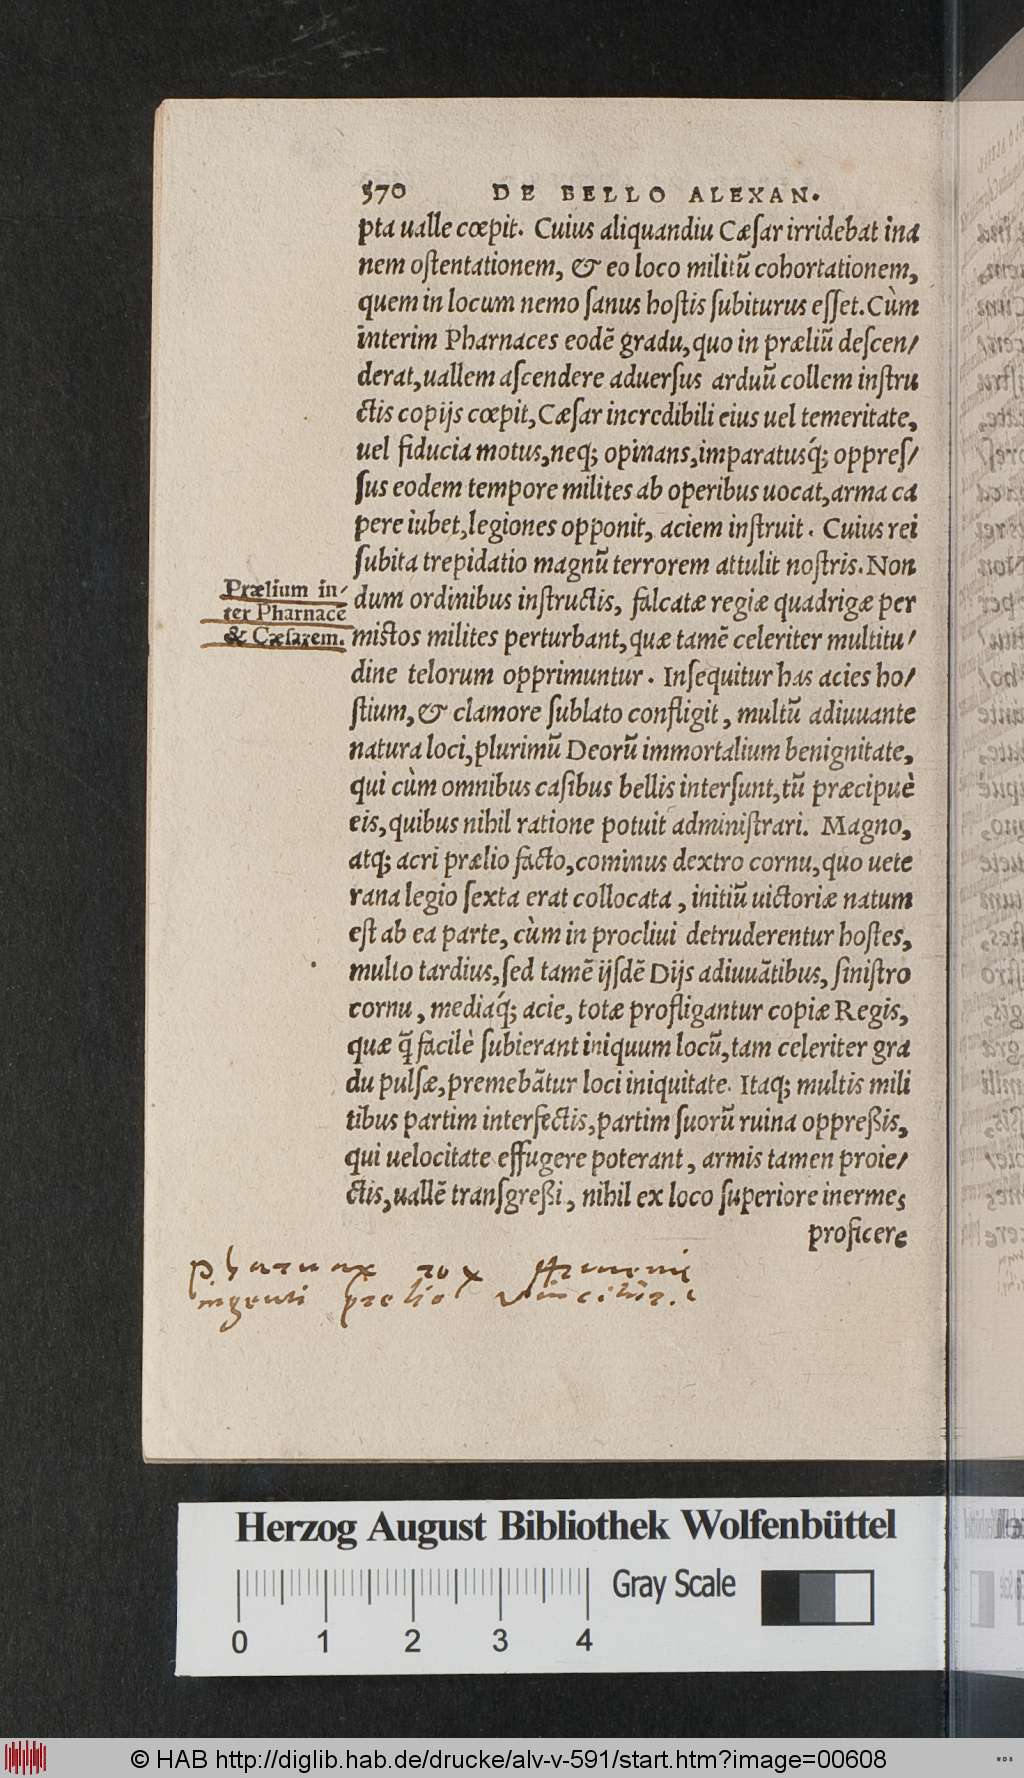 570 DE BELLO ALEXAN.
pta ualle cœpit. Cuius aliquandiu Cæſar irridebat ina
nem oſtentationem, & eo loco militū cohortationem,
quem in locum nemo ſanus hoſtis ſubiturus eſſet. Cùm
interim Pharnaces eodē gradu, quo in præliū deſcen/
derat, uallem aſcendere aduerſus arduū collem inſtru
ctis copijs cœpit, Cæſar incredibili eius uel temeritate,
uel fiducia motus, neq; opinans, imparatusq́; oppreſ/
ſus eodem tempore milites ab operibus uocat, arma ca
pere iubet, legiones opponit, aciem inſtruit. Cuius rei
ſubita trepidatio magnū terrorem attulit noſtris. Non
Prælium in/
ter Pharnacē
& Cæſarem.
dum ordinibus inſtructis, falcatæ regiæ quadrigæ per
mistos milites perturbant, quæ tamē celeriter multitu/
dine telorum opprimuntur. Inſequitur has acies ho/
ſtium, & clamore ſublato confligit, multū adiuuante
natura loci, plurimū Deorū immortalium benignitate,
qui cùm omnibus caſibus bellis interſunt, tū præcipuè
eis, quibus nihil ratione potuit adminiſtrari. Magno,
atq; acri prælio facto, cominus dextro cornu, quo uete
rana legio ſexta erat collocata, initiū uictoriæ natum
eſt ab ea parte, cùm in procliui detruderentur hoſtes,
multo tardius, ſed tamē ijſdē Dijs adiuuātibus, ſiniſtro
cornu, mediaq́; acie, totæ profligantur copiæ Regis,
quæ q̄ facilè ſubierant iniquum locū, tam celeriter gra
du pulſæ, premebātur loci iniquitate. Itaq; multis mili
tibus partim interfectis, partim ſuorū ruina oppreßis,
qui uelocitate effugere poterant, armis tamen proie/
ctis, uallē tranſgreßi, nihil ex loco ſuperiore inermes
proficere
pharnax rex Armenie
ingenti prelio vincitur.
Herzog August Bibliothek Wolfenbüttel
Gray Scale
0 1 2 3 4
© HAB http://diglib.hab.de/drucke/alv-v-591/start.htm?image=00608